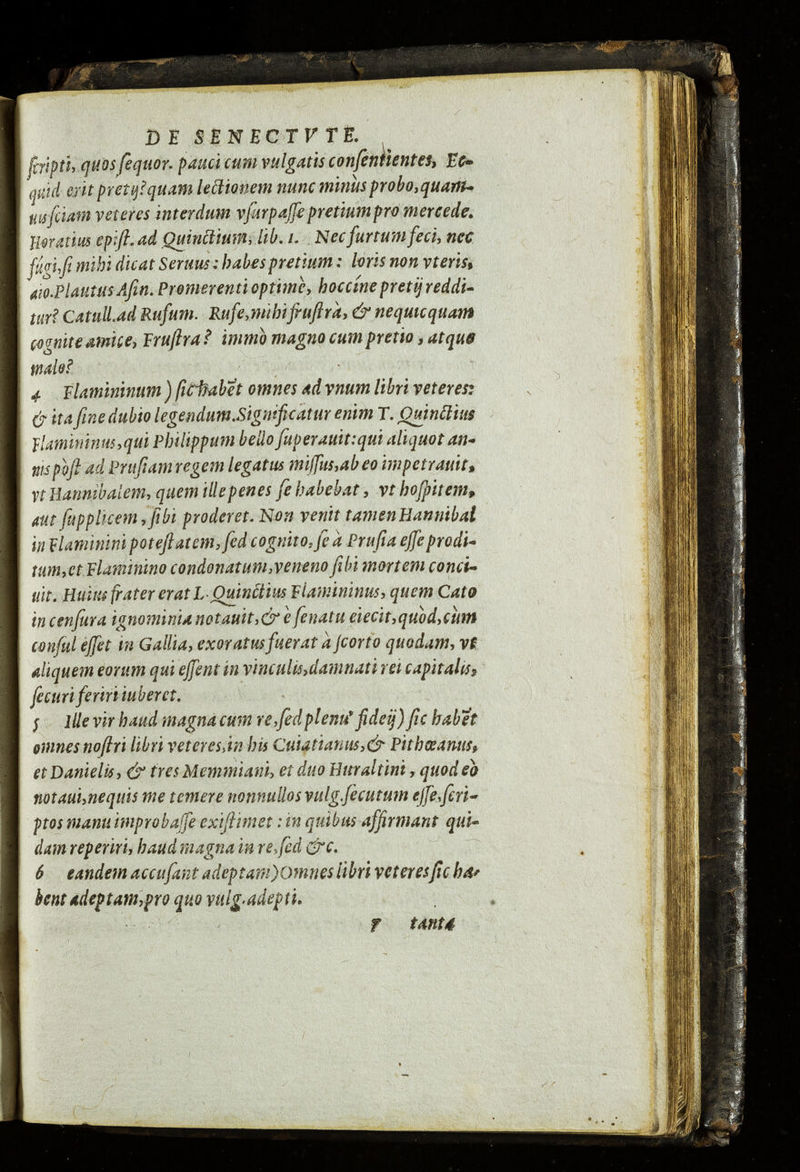 DE SENECTVTE.
ſcripti, quos ſequor. pauci cum vulgatis conſentientes, Ec-
quid erit pretij? quam lectionem nunc minus probo, quam-
uis ſciam veteres interdum vſurpaſſe pretium pro mercede.
Horatius epiſt. ad Quinctium, lib. 1. Nec furtum feci, nec
fugi, ſi mihi dicat Seruus: habes pretium: loris non vteris,
aio. Plautus Aſin. Promerenti optimè, hoccine pretij reddi-
tur? Catull. ad Rufum. Rufe, mihi fruſtrà, & nequicquam
cognite amice, Fruſtra? immò magno cum pretio, atque
malo?
4 Flamininum) ſic habēt omnes ad vnum libri veteres:
& ita ſine dubio legendum. Significatur enim T. Quinctius
Flamininus, qui Philippum bello ſuperauit: qui aliquot an-
nis pòſt ad Pruſiam regem legatus miſſus, ab eo impetrauit,
vt Hannibalem, quem ille penes ſe habebat, vt hoſpitem,
aut ſupplicem, ſibi proderet. Non venit tamen Hannibal
in Flaminini poteſtatem, ſed cognito, ſe à Pruſia eſſe prodi-
tum, et Flaminino condonatum, veneno ſibi mortem conci-
uit. Huius frater erat L. Quinctius Flamininus, quem Cato
in cenſura ignominia notauit, & è ſenatu eiecit, quòd, cùm
conſul eſſet in Gallia, exoratus fuerat à ſcorto quodam, vt
aliquem eorum qui eſſent in vinculis, damnati rei capitalis,
ſecuri feriri iuberet.
5 Ille vir haud magna cum re, ſed plenu' fideij) ſic habēt
omnes noſtri libri veteres, in his Cuiatianus, & Pithœanus,
et Danielis, & tres Memmiani, et duo Huraltini, quod eò
notaui, nequis me temere nonnullos vulg. ſecutum eſſe, ſcri-
ptos manu improbaſſe exiſtimet: in quibus affirmant qui-
dam reperiri, haud magna in re, ſed &c.
6 eandem accuſant adeptam) Omnes libri veteres ſic ha-
bent adeptam, pro quo vulg. adepti.
r tanta